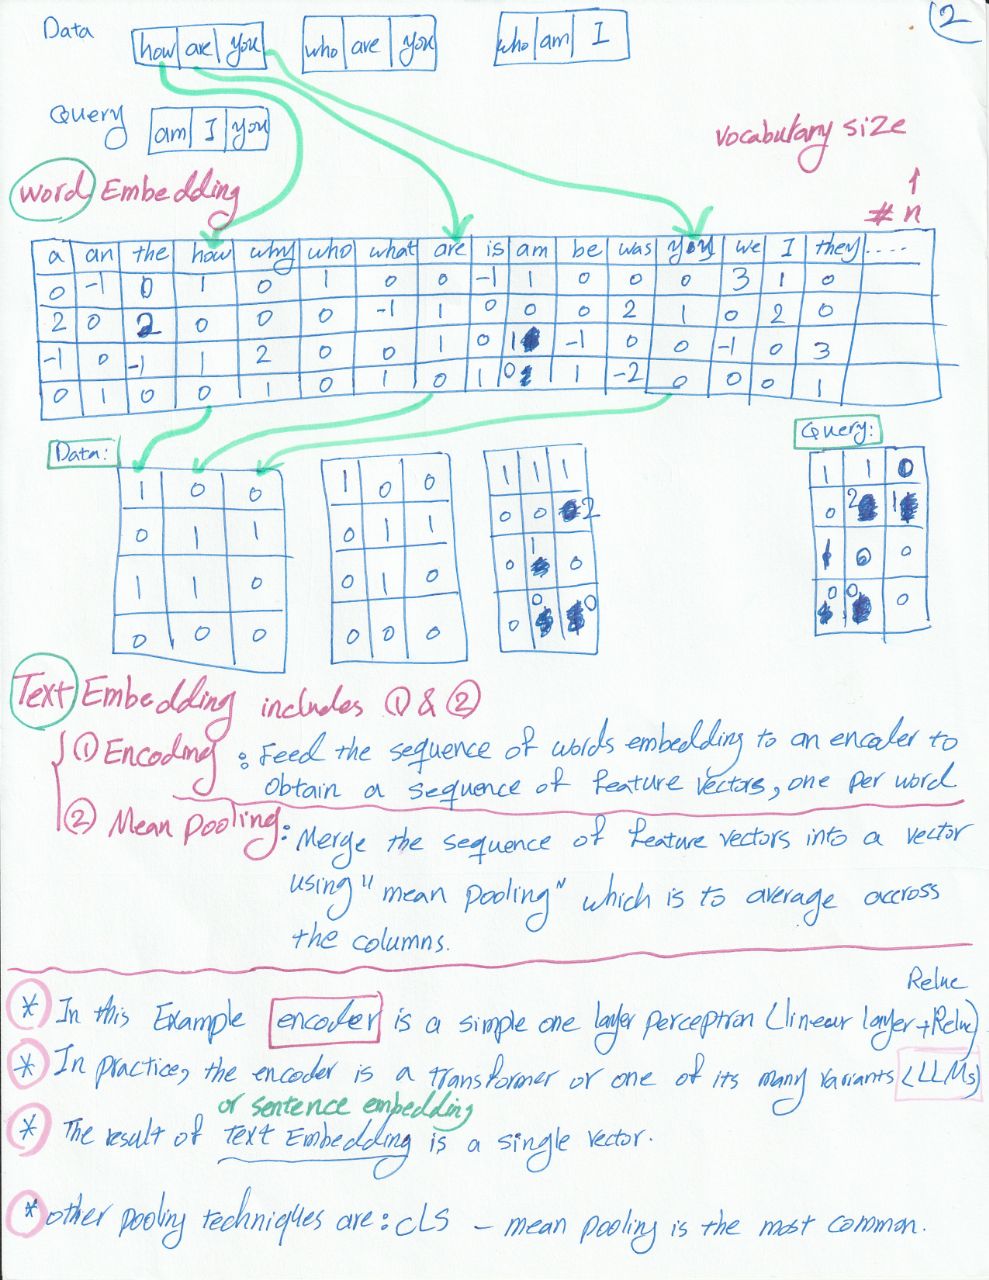 2
Data
how are you
who are you
who am I
Query
am I you
vocabulary size
↑
# n
Word Embedding
a an the how why who what are is am be was you we I they ....
0 -1 0 1 0 1 0 0 -1 1 0 0 0 3 1 0
2 0 2 0 0 0 -1 1 0 0 0 2 1 0 2 0
-1 0 -1 1 2 0 0 1 0 1 -1 0 0 -1 0 3
0 1 0 0 1 0 1 0 1 0 1 -2 0 0 0 1
Data:
1 0 0
0 1 1
1 1 0
0 0 0
1 0 0
0 1 1
0 1 0
0 0 0
1 1 1
0 0 2
0 1 0
0 0 0
Query:
1 1 0
0 2 1
1 0 0
0 0 0
Text Embedding includes ① & ②
① Encoding : Feed the sequence of words embedding to an encoder to
obtain a sequence of feature vectors, one per word
② Mean Pooling: Merge the sequence of feature vectors into a vector
using "mean pooling" which is to average accross
the columns.
Relue
* In this Example encoder is a simple one layer perceptron (linear layer + Relue)
* In practice, the encoder is a transformer or one of its many variants (LLMs)
or sentence embedding
* The result of Text Embedding is a single vector.
* other pooling techniques are: CLS - mean pooling is the most common.